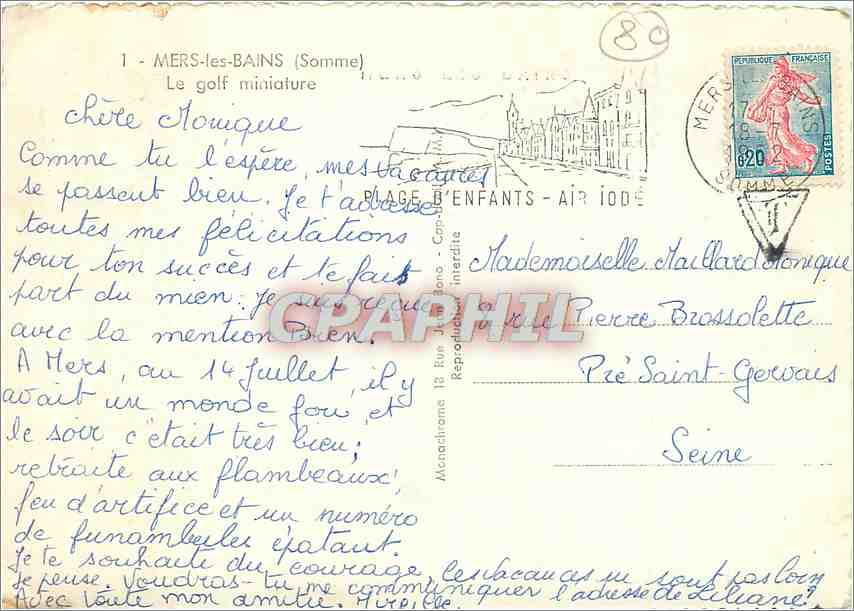 1 - MERS-les-BAINS (Somme)
Le golf miniature
80
MERS LES BAINS
PLAGE D'ENFANTS - AIR IODÉ
RÉPUBLIQUE FRANÇAISE
0,20
POSTES
MERS LES BAINS
17
18-7
SOMME
T
chère Monique
Comme tu l'espère, mes vacances
se passent bien. Je t'adresse
toutes mes félicitations
pour ton succès et te fais
part du mien. Je suis reçue
avec la mention Bien.
A Mers, au 14 Juillet, il y
avait un monde fou et
le soir c'était très bien;
retraite aux flambeaux,
feu d'artifice et un numéro
de funambules épatant.
Je te souhaite du courage, les vacances ne sont pas loin
je pense. Voudras-tu me communiquer l'adresse de Liliane?
Avec toute mon amitié. Mireille.
Monochrome 18 Rue Jean Bono - Cap-
Reproduction interdite
Mademoiselle Maillard Monique
8 rue Pierre Brossolette
Pré Saint-Gervais
Seine
CPAPHIL